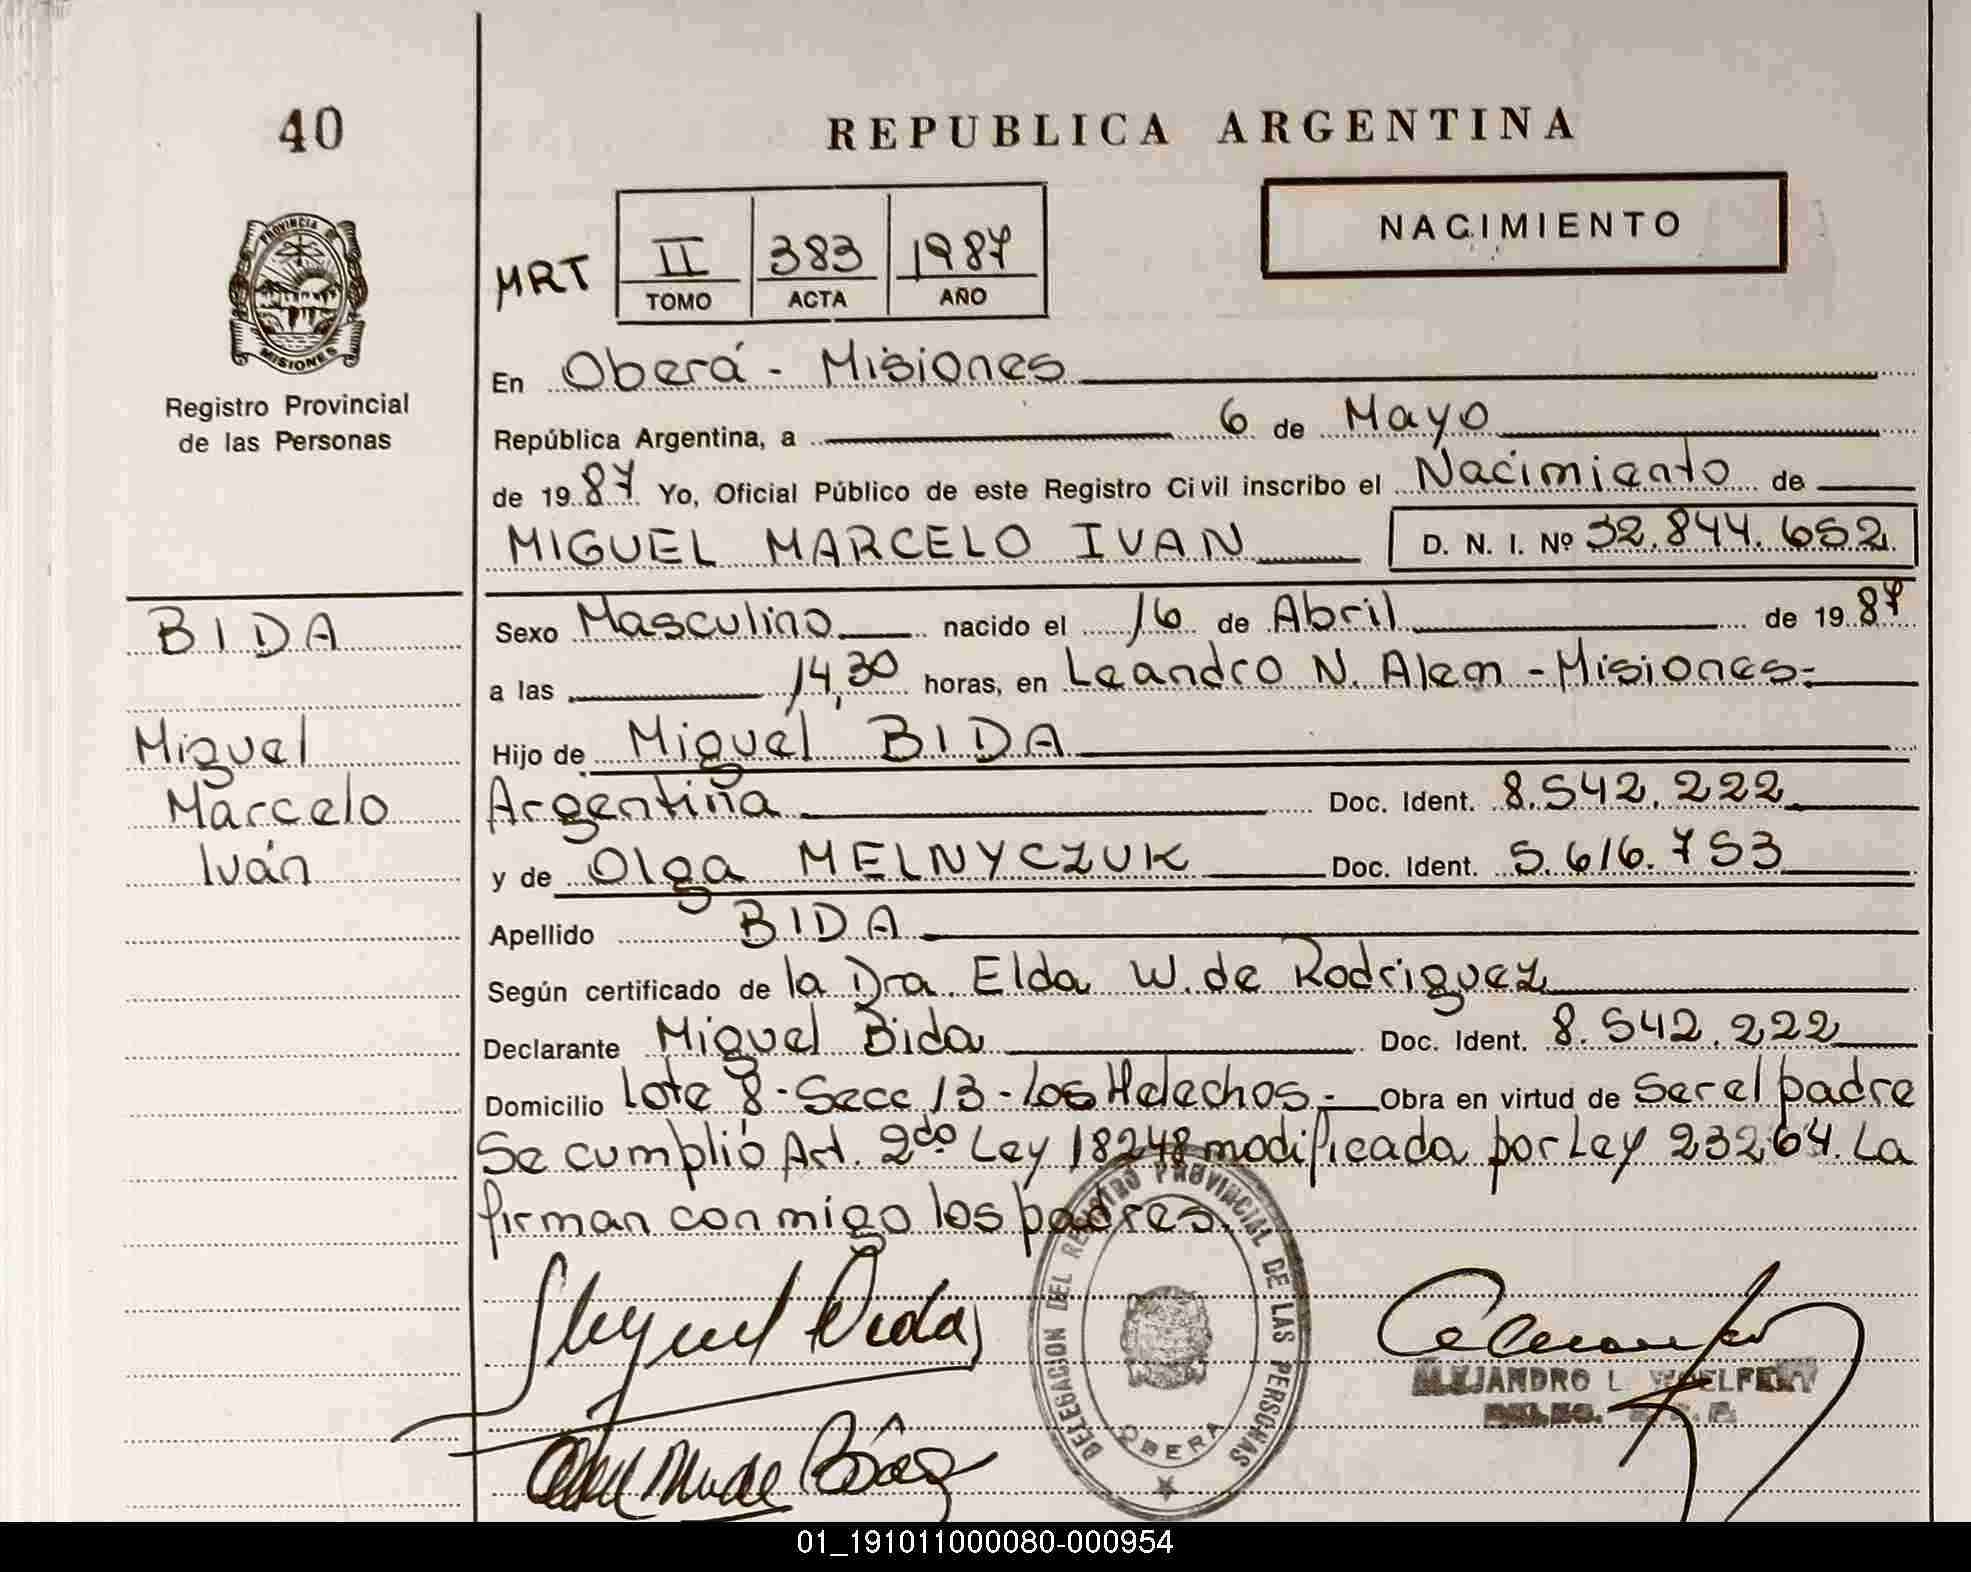 40
REPUBLICA ARGENTINA
PROVINCIA D
MISIONES
Registro Provincial
de las Personas
NACIMIENTO
MRT II 383 1987
TOMO ACTA AÑO
En Oberá - Misiones
República Argentina, a 6 de Mayo
de 19 87 Yo, Oficial Público de este Registro Civil inscribo el Nacimiento de
MIGUEL MARCELO IVAN D. N. I. Nº 32.844.652
BIDA
Miguel
Marcelo
Iván
Sexo Masculino nacido el 16 de Abril de 19 87
a las 14,30 horas, en Leandro N. Alem - Misiones.-
Hijo de Miguel BIDA
Argentina Doc. Ident. 8.542.222
y de Olga MELNYCZUK Doc. Ident. 5.616.753
Apellido BIDA
Según certificado de la Dra. Elda W. de Rodriguez
Declarante Miguel Bida Doc. Ident. 8.542.222
Domicilio Lote 8 - Secc 13 - Los Helechos.- Obra en virtud de Ser el padre
Se cumplió Art. 2do Ley 18248 modificada por Ley 23264. La
firman conmigo los padres.
Miguel Bida
DELEGACION DEL REGISTRO PROVINCIAL DE LAS PERSONAS
OBERA
ALEJANDRO L.
01_191011000080-000954